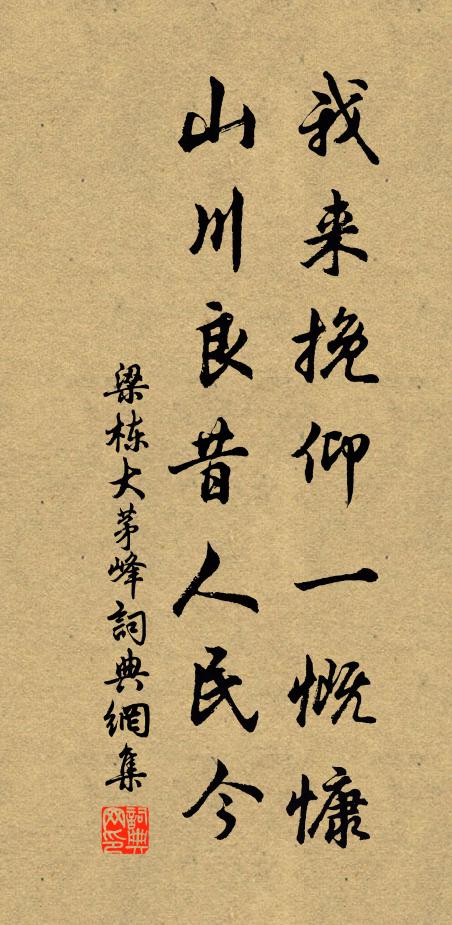 我来挽仰一慨慷
山川良昔人民今
梁栋大茅峰詞典網集
詞典網印